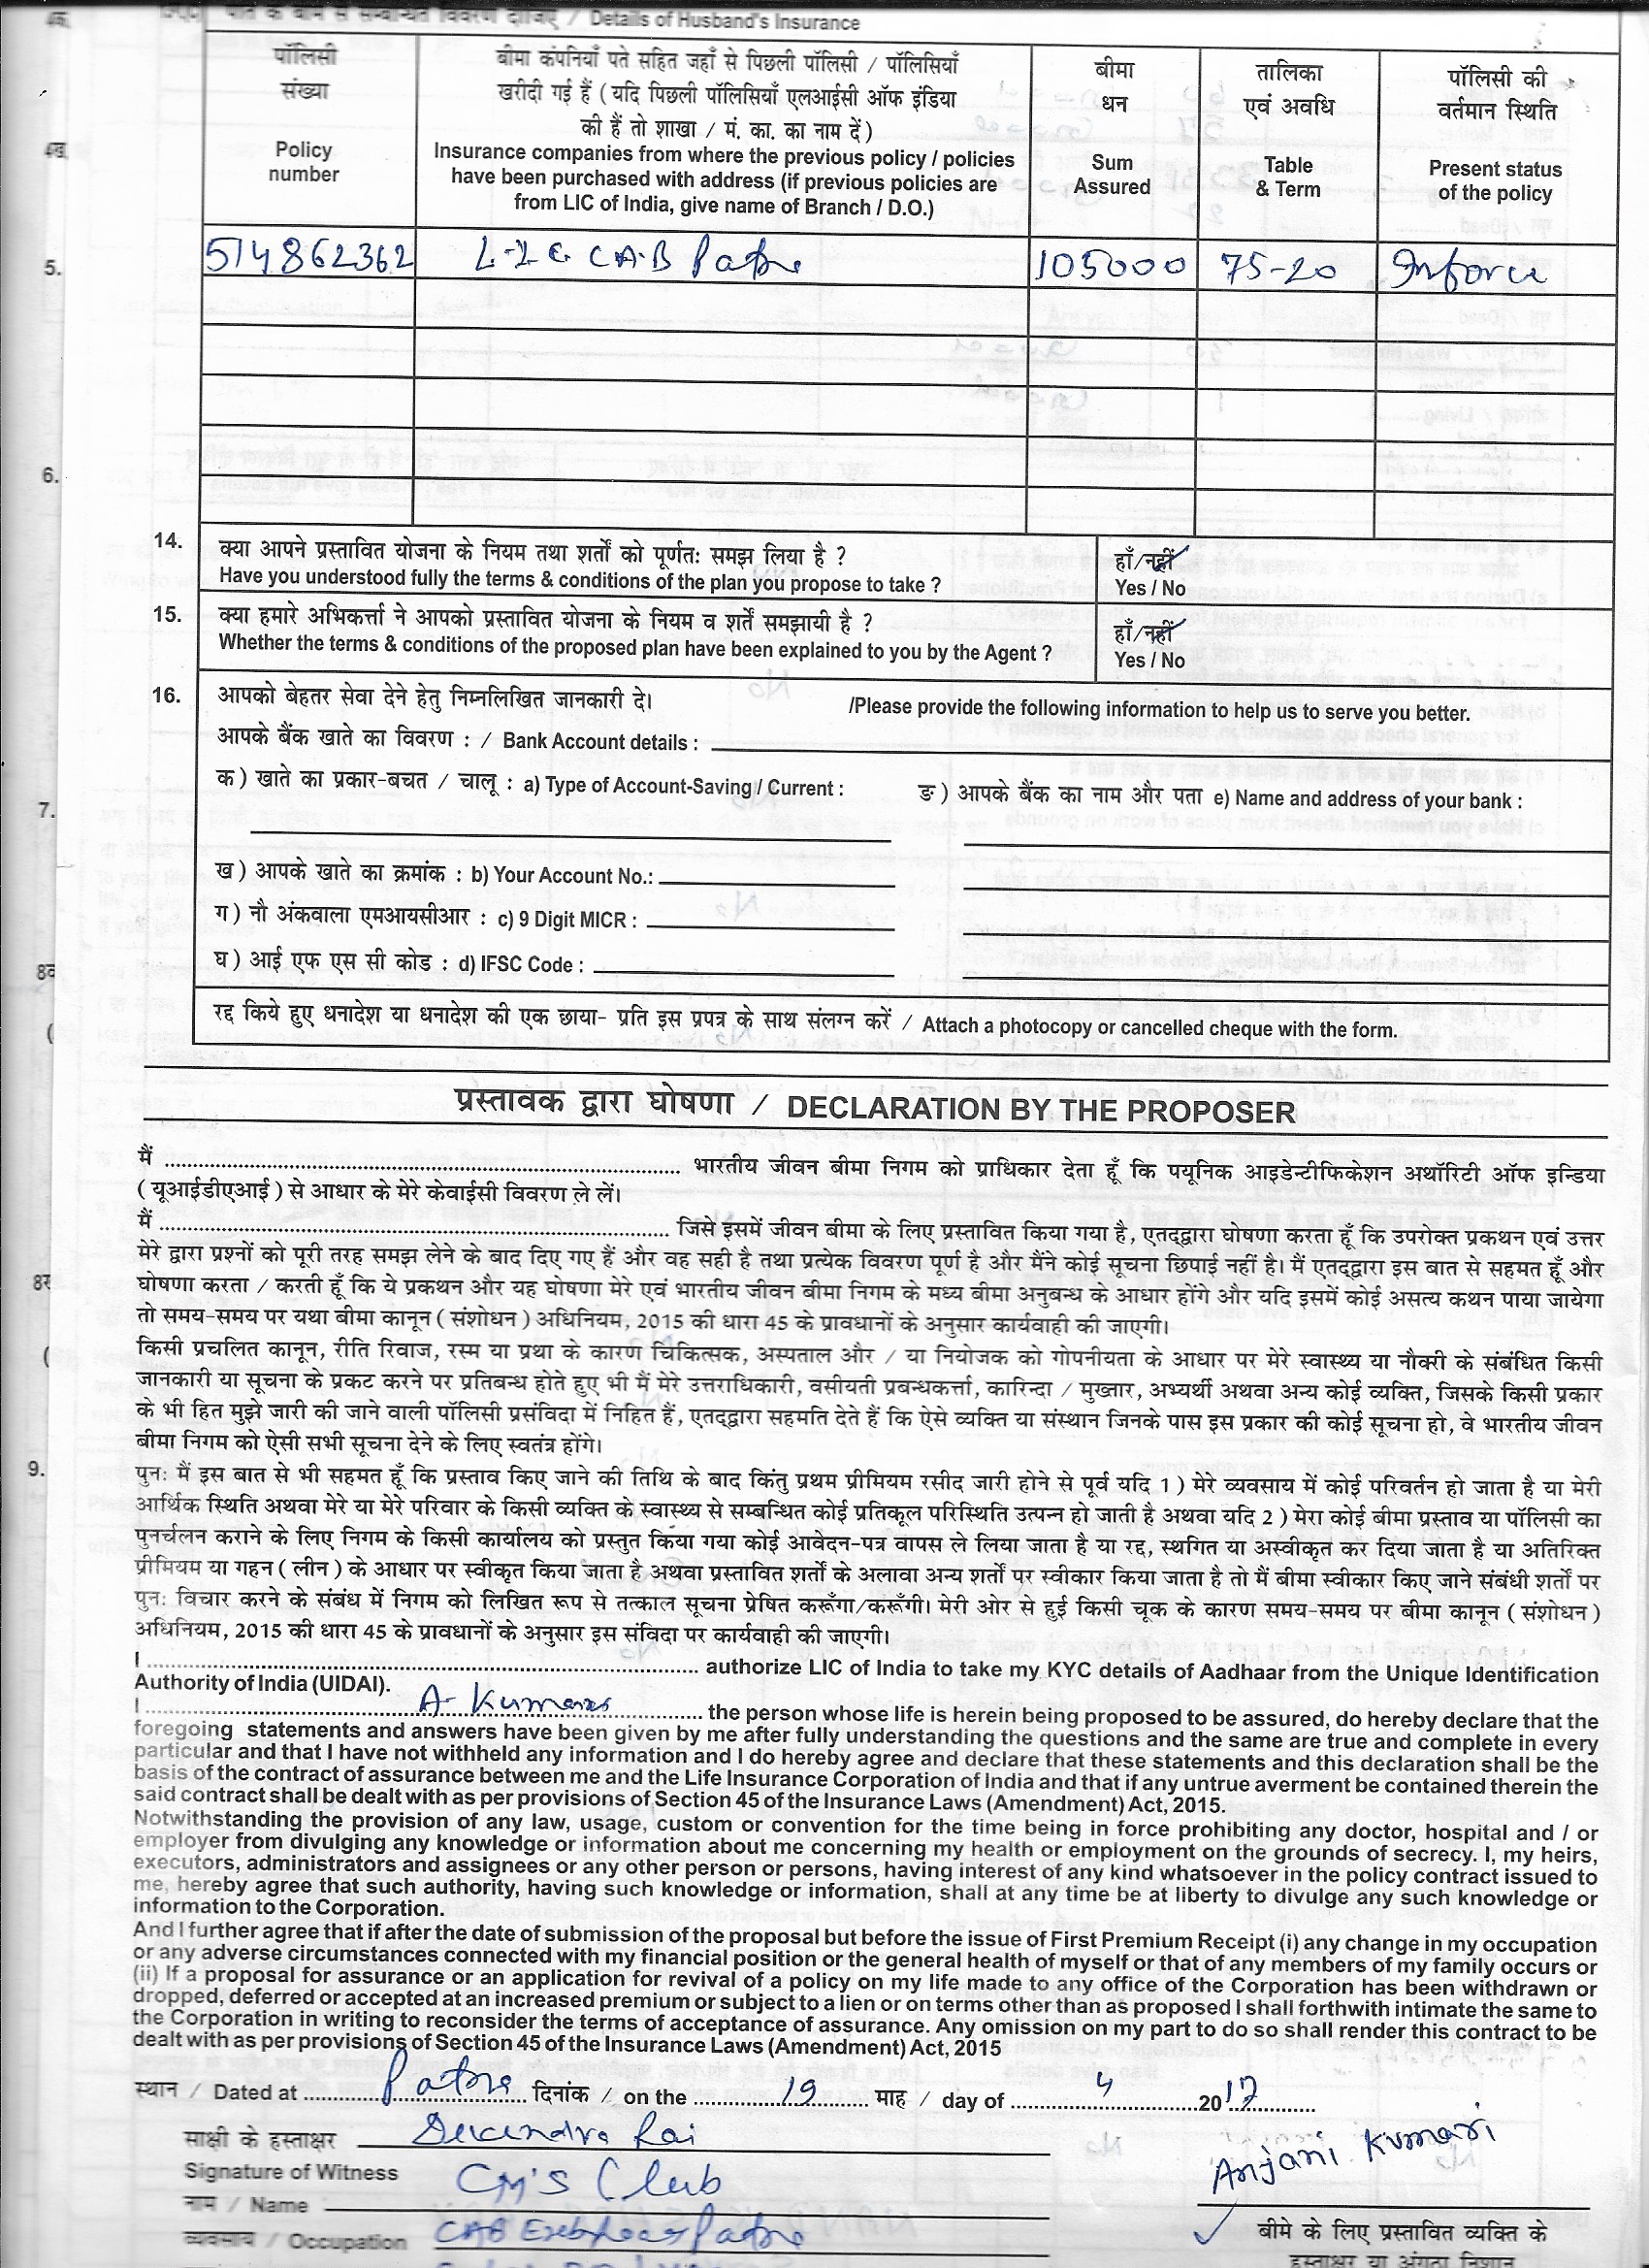 पति के बीमे से सम्बन्धित विवरण दीजिए / Details of Husband's Insurance
पॉलिसी संख्या Policy number
बीमा कंपनियाँ पते सहित जहाँ से पिछली पॉलिसी / पॉलिसियाँ
खरीदी गई हैं ( यदि पिछली पॉलिसियाँ एलआईसी ऑफ इंडिया
की हैं तो शाखा / मं. का. का नाम दें )
Insurance companies from where the previous policy / policies
have been purchased with address (if previous policies are
from LIC of India, give name of Branch / D.O.)
बीमा धन Sum Assured
तालिका एवं अवधि Table & Term
पॉलिसी की वर्तमान स्थिति Present status of the policy
514862362 L.I.C CAB Patna 105000 75-20 Inforce
5.
6.
14. क्या आपने प्रस्तावित योजना के नियम तथा शर्तो को पूर्णतः समझ लिया है ? हाँ/नहीं
Have you understood fully the terms & conditions of the plan you propose to take ? Yes / No
15. क्या हमारे अभिकर्त्ता ने आपको प्रस्तावित योजना के नियम व शर्ते समझायी है ? हाँ/नहीं
Whether the terms & conditions of the proposed plan have been explained to you by the Agent ? Yes / No
16. आपको बेहतर सेवा देने हेतु निम्नलिखित जानकारी दे। /Please provide the following information to help us to serve you better.
आपके बैंक खाते का विवरण : / Bank Account details :
क ) खाते का प्रकार-बचत / चालू : a) Type of Account-Saving / Current : ङ ) आपके बैंक का नाम और पता e) Name and address of your bank :
7.
ख ) आपके खाते का क्रमांक : b) Your Account No.:
ग ) नौ अंकवाला एमआयसीआर : c) 9 Digit MICR :
घ ) आई एफ एस सी कोड : d) IFSC Code :
रद्द किये हुए धनादेश या धनादेश की एक छाया- प्रति इस प्रपत्र के साथ संलग्न करें / Attach a photocopy or cancelled cheque with the form.
प्रस्तावक द्वारा घोषणा / DECLARATION BY THE PROPOSER
मैं .......... भारतीय जीवन बीमा निगम को प्राधिकार देता हूँ कि पयूनिक आइडेन्टीफिकेशन अथॉरिटी ऑफ इन्डिया
( यूआईडीएआई ) से आधार के मेरे केवाईसी विवरण ले लें।
मैं .......... जिसे इसमें जीवन बीमा के लिए प्रस्तावित किया गया है, एतद्द्वारा घोषणा करता हूँ कि उपरोक्त प्रकथन एवं उत्तर
मेरे द्वारा प्रश्नों को पूरी तरह समझ लेने के बाद दिए गए हैं और वह सही है तथा प्रत्येक विवरण पूर्ण है और मैंने कोई सूचना छिपाई नहीं है। मैं एतद्द्वारा इस बात से सहमत हूँ और
घोषणा करता / करती हूँ कि ये प्रकथन और यह घोषणा मेरे एवं भारतीय जीवन बीमा निगम के मध्य बीमा अनुबन्ध के आधार होंगे और यदि इसमें कोई असत्य कथन पाया जायेगा
तो समय-समय पर यथा बीमा कानून ( संशोधन ) अधिनियम, 2015 की धारा 45 के प्रावधानों के अनुसार कार्यवाही की जाएगी।
किसी प्रचलित कानून, रीति रिवाज, रस्म या प्रथा के कारण चिकित्सक, अस्पताल और / या नियोजक को गोपनीयता के आधार पर मेरे स्वास्थ्य या नौकरी के संबंधित किसी
जानकारी या सूचना के प्रकट करने पर प्रतिबन्ध होते हुए भी मैं मेरे उत्तराधिकारी, वसीयती प्रबन्धकर्त्ता, कारिन्दा / मुख्तार, अभ्यर्थी अथवा अन्य कोई व्यक्ति, जिसके किसी प्रकार
के भी हित मुझे जारी की जाने वाली पॉलिसी प्रसंविदा में निहित हैं, एतद्द्वारा सहमति देते हैं कि ऐसे व्यक्ति या संस्थान जिनके पास इस प्रकार की कोई सूचना हो, वे भारतीय जीवन
बीमा निगम को ऐसी सभी सूचना देने के लिए स्वतंत्र होंगे।
9.
पुनः मैं इस बात से भी सहमत हूँ कि प्रस्ताव किए जाने की तिथि के बाद किंतु प्रथम प्रीमियम रसीद जारी होने से पूर्व यदि 1 ) मेरे व्यवसाय में कोई परिवर्तन हो जाता है या मेरी
आर्थिक स्थिति अथवा मेरे या मेरे परिवार के किसी व्यक्ति के स्वास्थ्य से सम्बन्धित कोई प्रतिकूल परिस्थिति उत्पन्न हो जाती है अथवा यदि 2 ) मेरा कोई बीमा प्रस्ताव या पॉलिसी का
पुनर्चलन कराने के लिए निगम के किसी कार्यालय को प्रस्तुत किया गया कोई आवेदन-पत्र वापस ले लिया जाता है या रद्द, स्थगित या अस्वीकृत कर दिया जाता है या अतिरिक्त
प्रीमियम या गहन ( लीन ) के आधार पर स्वीकृत किया जाता है अथवा प्रस्तावित शर्तो के अलावा अन्य शर्तों पर स्वीकार किया जाता है तो मैं बीमा स्वीकार किए जाने संबंधी शर्तों पर
पुनः विचार करने के संबंध में निगम को लिखित रूप से तत्काल सूचना प्रेषित करूँगा/करूँगी। मेरी ओर से हुई किसी चूक के कारण समय-समय पर बीमा कानून ( संशोधन )
अधिनियम, 2015 की धारा 45 के प्रावधानों के अनुसार इस संविदा पर कार्यवाही की जाएगी।
I .......... authorize LIC of India to take my KYC details of Aadhaar from the Unique Identification
Authority of India (UIDAI).
I .......... A. Kumari .......... the person whose life is herein being proposed to be assured, do hereby declare that the
foregoing statements and answers have been given by me after fully understanding the questions and the same are true and complete in every
particular and that I have not withheld any information and I do hereby agree and declare that these statements and this declaration shall be the
basis of the contract of assurance between me and the Life Insurance Corporation of India and that if any untrue averment be contained therein the
said contract shall be dealt with as per provisions of Section 45 of the Insurance Laws (Amendment) Act, 2015.
Notwithstanding the provision of any law, usage, custom or convention for the time being in force prohibiting any doctor, hospital and / or
employer from divulging any knowledge or information about me concerning my health or employment on the grounds of secrecy. I, my heirs,
executors, administrators and assignees or any other person or persons, having interest of any kind whatsoever in the policy contract issued to
me, hereby agree that such authority, having such knowledge or information, shall at any time be at liberty to divulge any such knowledge or
information to the Corporation.
And I further agree that if after the date of submission of the proposal but before the issue of First Premium Receipt (i) any change in my occupation
or any adverse circumstances connected with my financial position or the general health of myself or that of any members of my family occurs or
(ii) If a proposal for assurance or an application for revival of a policy on my life made to any office of the Corporation has been withdrawn or
dropped, deferred or accepted at an increased premium or subject to a lien or on terms other than as proposed I shall forthwith intimate the same to
the Corporation in writing to reconsider the terms of acceptance of assurance. Any omission on my part to do so shall render this contract to be
dealt with as per provisions of Section 45 of the Insurance Laws (Amendment) Act, 2015
स्थान / Dated at ..... Patna ..... दिनांक / on the ..... 19 ..... माह / day of ..... 4 ..... 2017
साक्षी के हस्ताक्षर Rai
Signature of Witness CM's Club
Anjani Kumari
नाम / Name
व्यवसाय / Occupation CAB Patna
बीमे के लिए प्रस्तावित व्यक्ति के
हस्ताक्षर या अंगूठा निशान